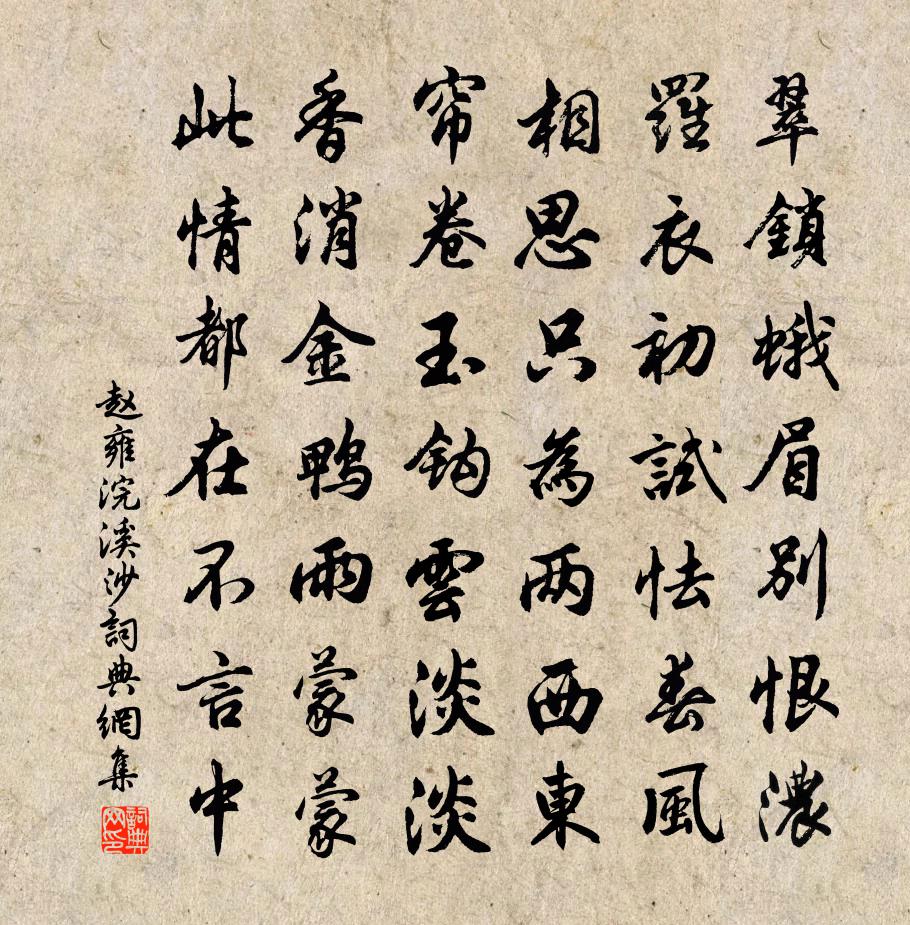 翠鎖蛾眉別恨濃
羅衣初試怯春風
相思只為两西東
帘卷玉鈎雲淡淡
香消金鴨雨蒙蒙
此情都在不言中
赵雍浣溪沙詞典網集
詞典网印